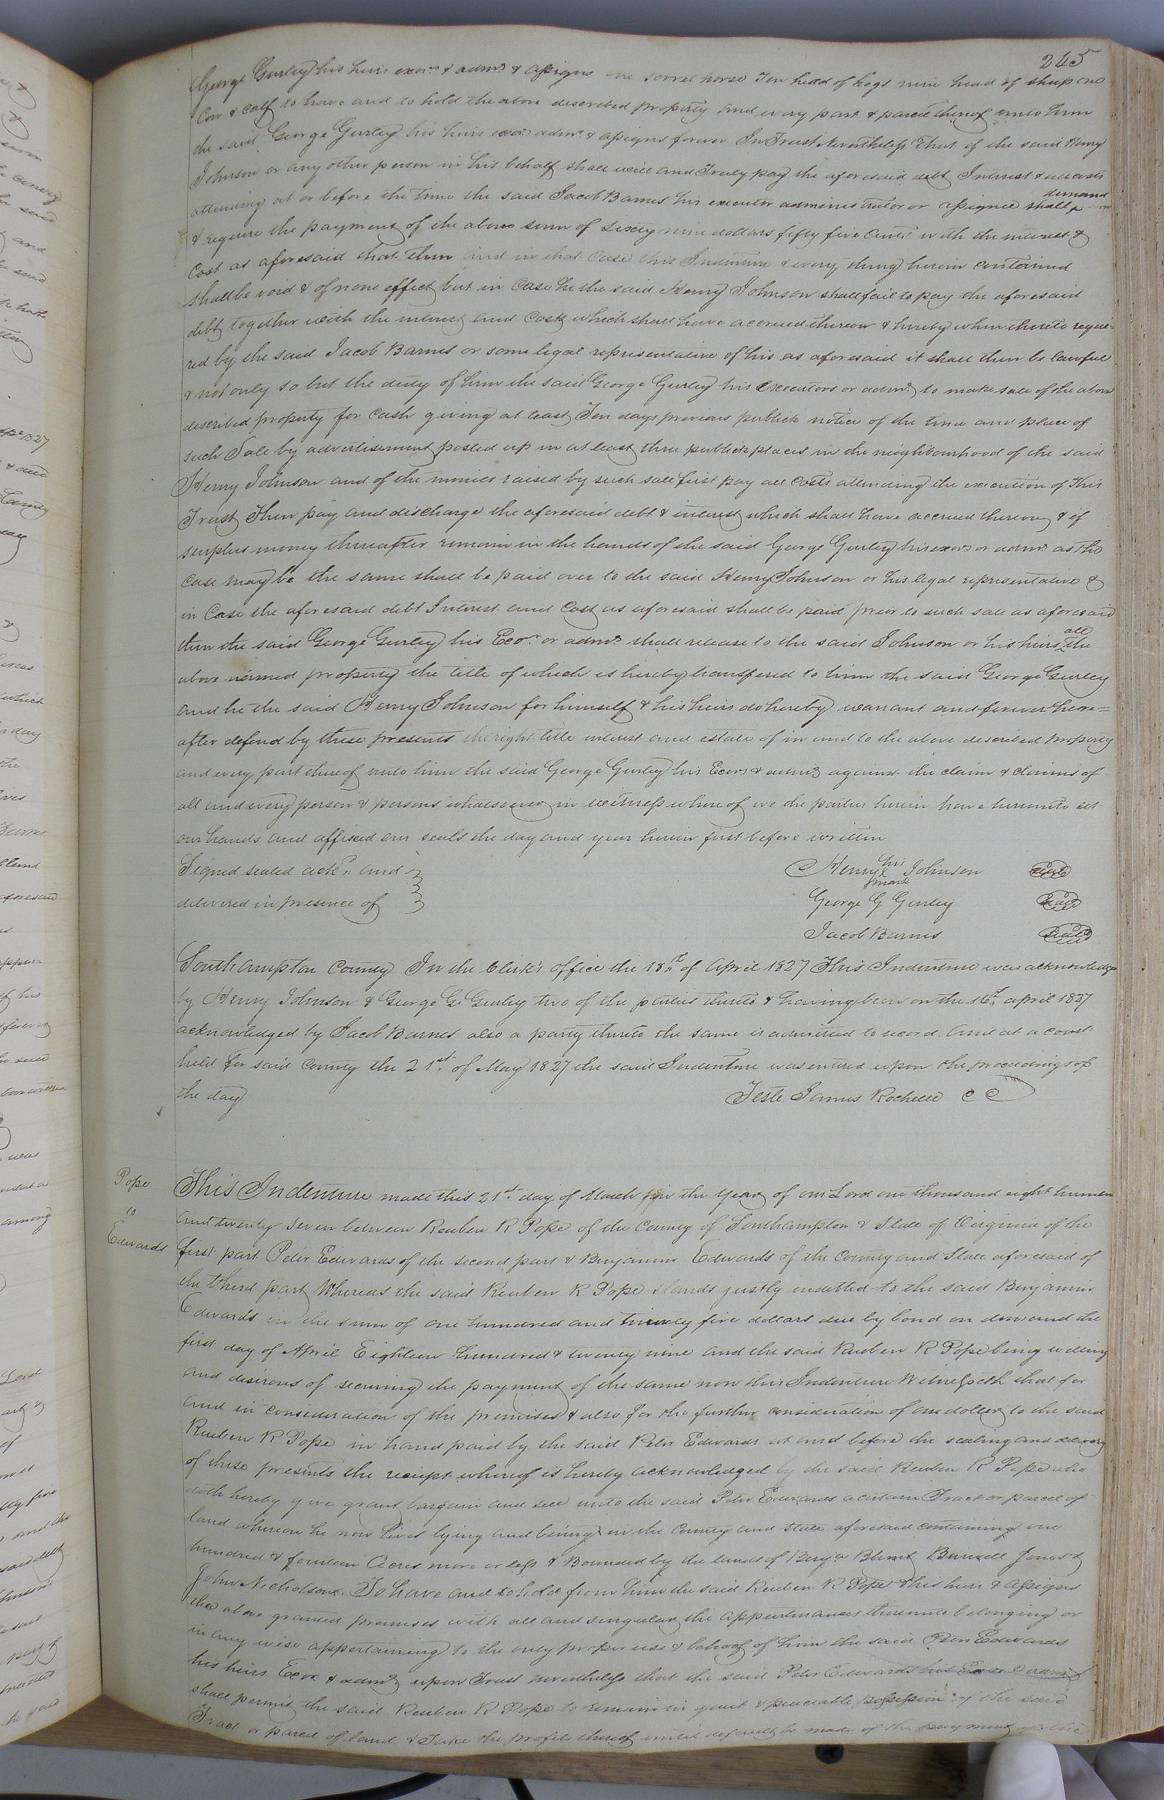 245
George Gurley his heirs exors & admrs & assigns one sorrel horse Ten head of hogs nine head of sheep one
Cow & calf to have and to hold the above described property and every part & parcel thereof unto him
the said George Gurley his heirs exors admrs & assigns forever In Trust Nevertheless That if the said Henry
Johnson or any other person in his behalf shall well and Truly pay the aforesaid debt Interest & all costs
attending at or before the time the said Jacob Barnes his executor administrator or assignee shall demand
& require the payment of the above sum of Sixty nine dollars fifty five Cents with the interest &
Cost as aforesaid that then and in that case this Indenture & every thing herein contained
shall be void & of none effect but in Case he the said Henry Johnson shall fail to pay the aforesaid
debt together with the interest and Costs which shall have accrued thereon & hereby when thereto requi-
red by the said Jacob Barnes or some legal representative of his as aforesaid it shall then be lawful
& not only so but the duty of him the said George Gurley his Executors or admrs to make sale of the above
described property for Cash giving at least Ten days previous publick notice of the time and place of
such Sale by advertisement posted up in at least three publick places in the neighbourhood of the said
Henry Johnson and of the monies raised by such sale first pay all Costs attending the execution of This
Trust Then pay and discharge the aforesaid debt & interest which shall have accrued thereon & if
surplus money thereafter remain in the hands of the said George Gurley his exors or admrs as the
Case may be the same shall be paid over to the said Henry Johnson or his legal representative &
in Case the aforesaid debt Interest and Cost as aforesaid shall be paid prior to such sale as aforesaid
then the said George Gurley his Exors or admrs shall release to the said Johnson or his heirs all the
above named property the title of which is hereby transfered to him the said George Gurley
and he the said Henry Johnson for himself & his heirs do hereby warrant and forever here=
after defend by these presents the right title interest and estate of in and to the above described property
and every part thereof unto him the said George Gurley his Exors & admrs against the claim & claims of
all and every person & persons whatsoever in witness whereof we the parties herein have hereunto set
our hands and affixed our seals the day and year herein first before written
Signed sealed ackd and
delivered in presence of
Henry his mark Johnson Seal
George G Gurley Seal
Jacob Barnes Seal
Southampton County In the Clerk's office the 18th of April 1827 This Indenture was acknowledge
by Henry Johnson & George G. Gurley two of the parties thereto & having been on the 16th april 1827
acknowledged by Jacob Barnes also a party thereto the same is admitted to record. And at a court
held for said County the 21st of May 1827 the said Indenture was entered upon the proceedings of
the day
Teste James Rochelle CC
Pope
to
Edwards
This Indenture made this 21st day of March in the Year of our Lord one thousand eight hundred
and twenty Seven between Reuben R Pope of the County of Southampton & State of Virginia of the
first part Peter Edwards of the second part & Benjamin Edwards of the County and State aforesaid of
the third part Whereas the said Reuben R Pope stands justly indebted to the said Benjamin
Edwards in the sum of one hundred and twenty five dollars due by bond on demand the
first day of April Eighteen hundred & twenty nine and the said Reuben R Pope being willing
and desirous of securing the payment of the same now this Indenture Witnesseth that for
and in consideration of the premises & also for the further consideration of one dollar to the said
Reuben R Pope in hand paid by the said Peter Edwards at and before the sealing and delivery
of these presents the receipt whereof is hereby acknowledged by the said Reuben R Pope who
doth hereby give grant bargain and sell unto the said Peter Edwards a certain Tract or parcel of
land whereon he now lives lying and being in the County and State aforesaid containing one
hundred & fourteen Acres more or less & Bounded by the lands of Benja Blunt Burwell Jones &
John Nicholson. To have and to hold from him the said Reuben R Pope & his heirs & assigns
the above granted premises with all and singular the appurtenances thereunto belonging or
in any wise appertaining to the only proper use & behoof of him the said Peter Edwards
his heirs Exors & admrs upon Trust nevertheless that the said Peter Edwards his Exors & admrs
shall permit the said Reuben R Pope to remain in quiet & peaceable possession of the said
Tract or parcel of land & Take the profits thereof until default be made of the payment of the